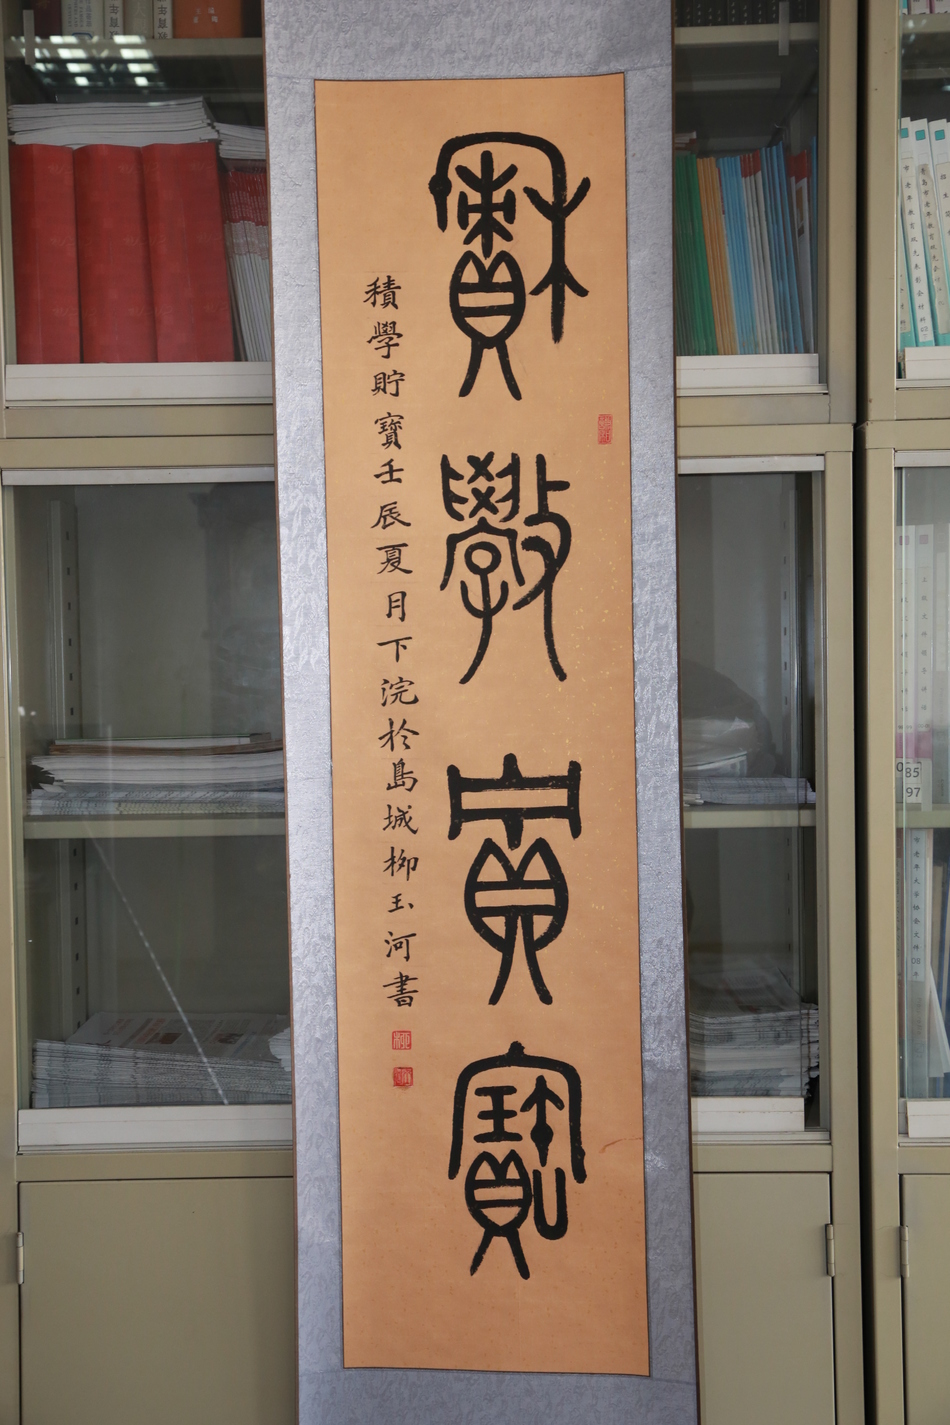 積學貯寶
積學貯寶壬辰夏月下浣於島城柳玉河書
085
97